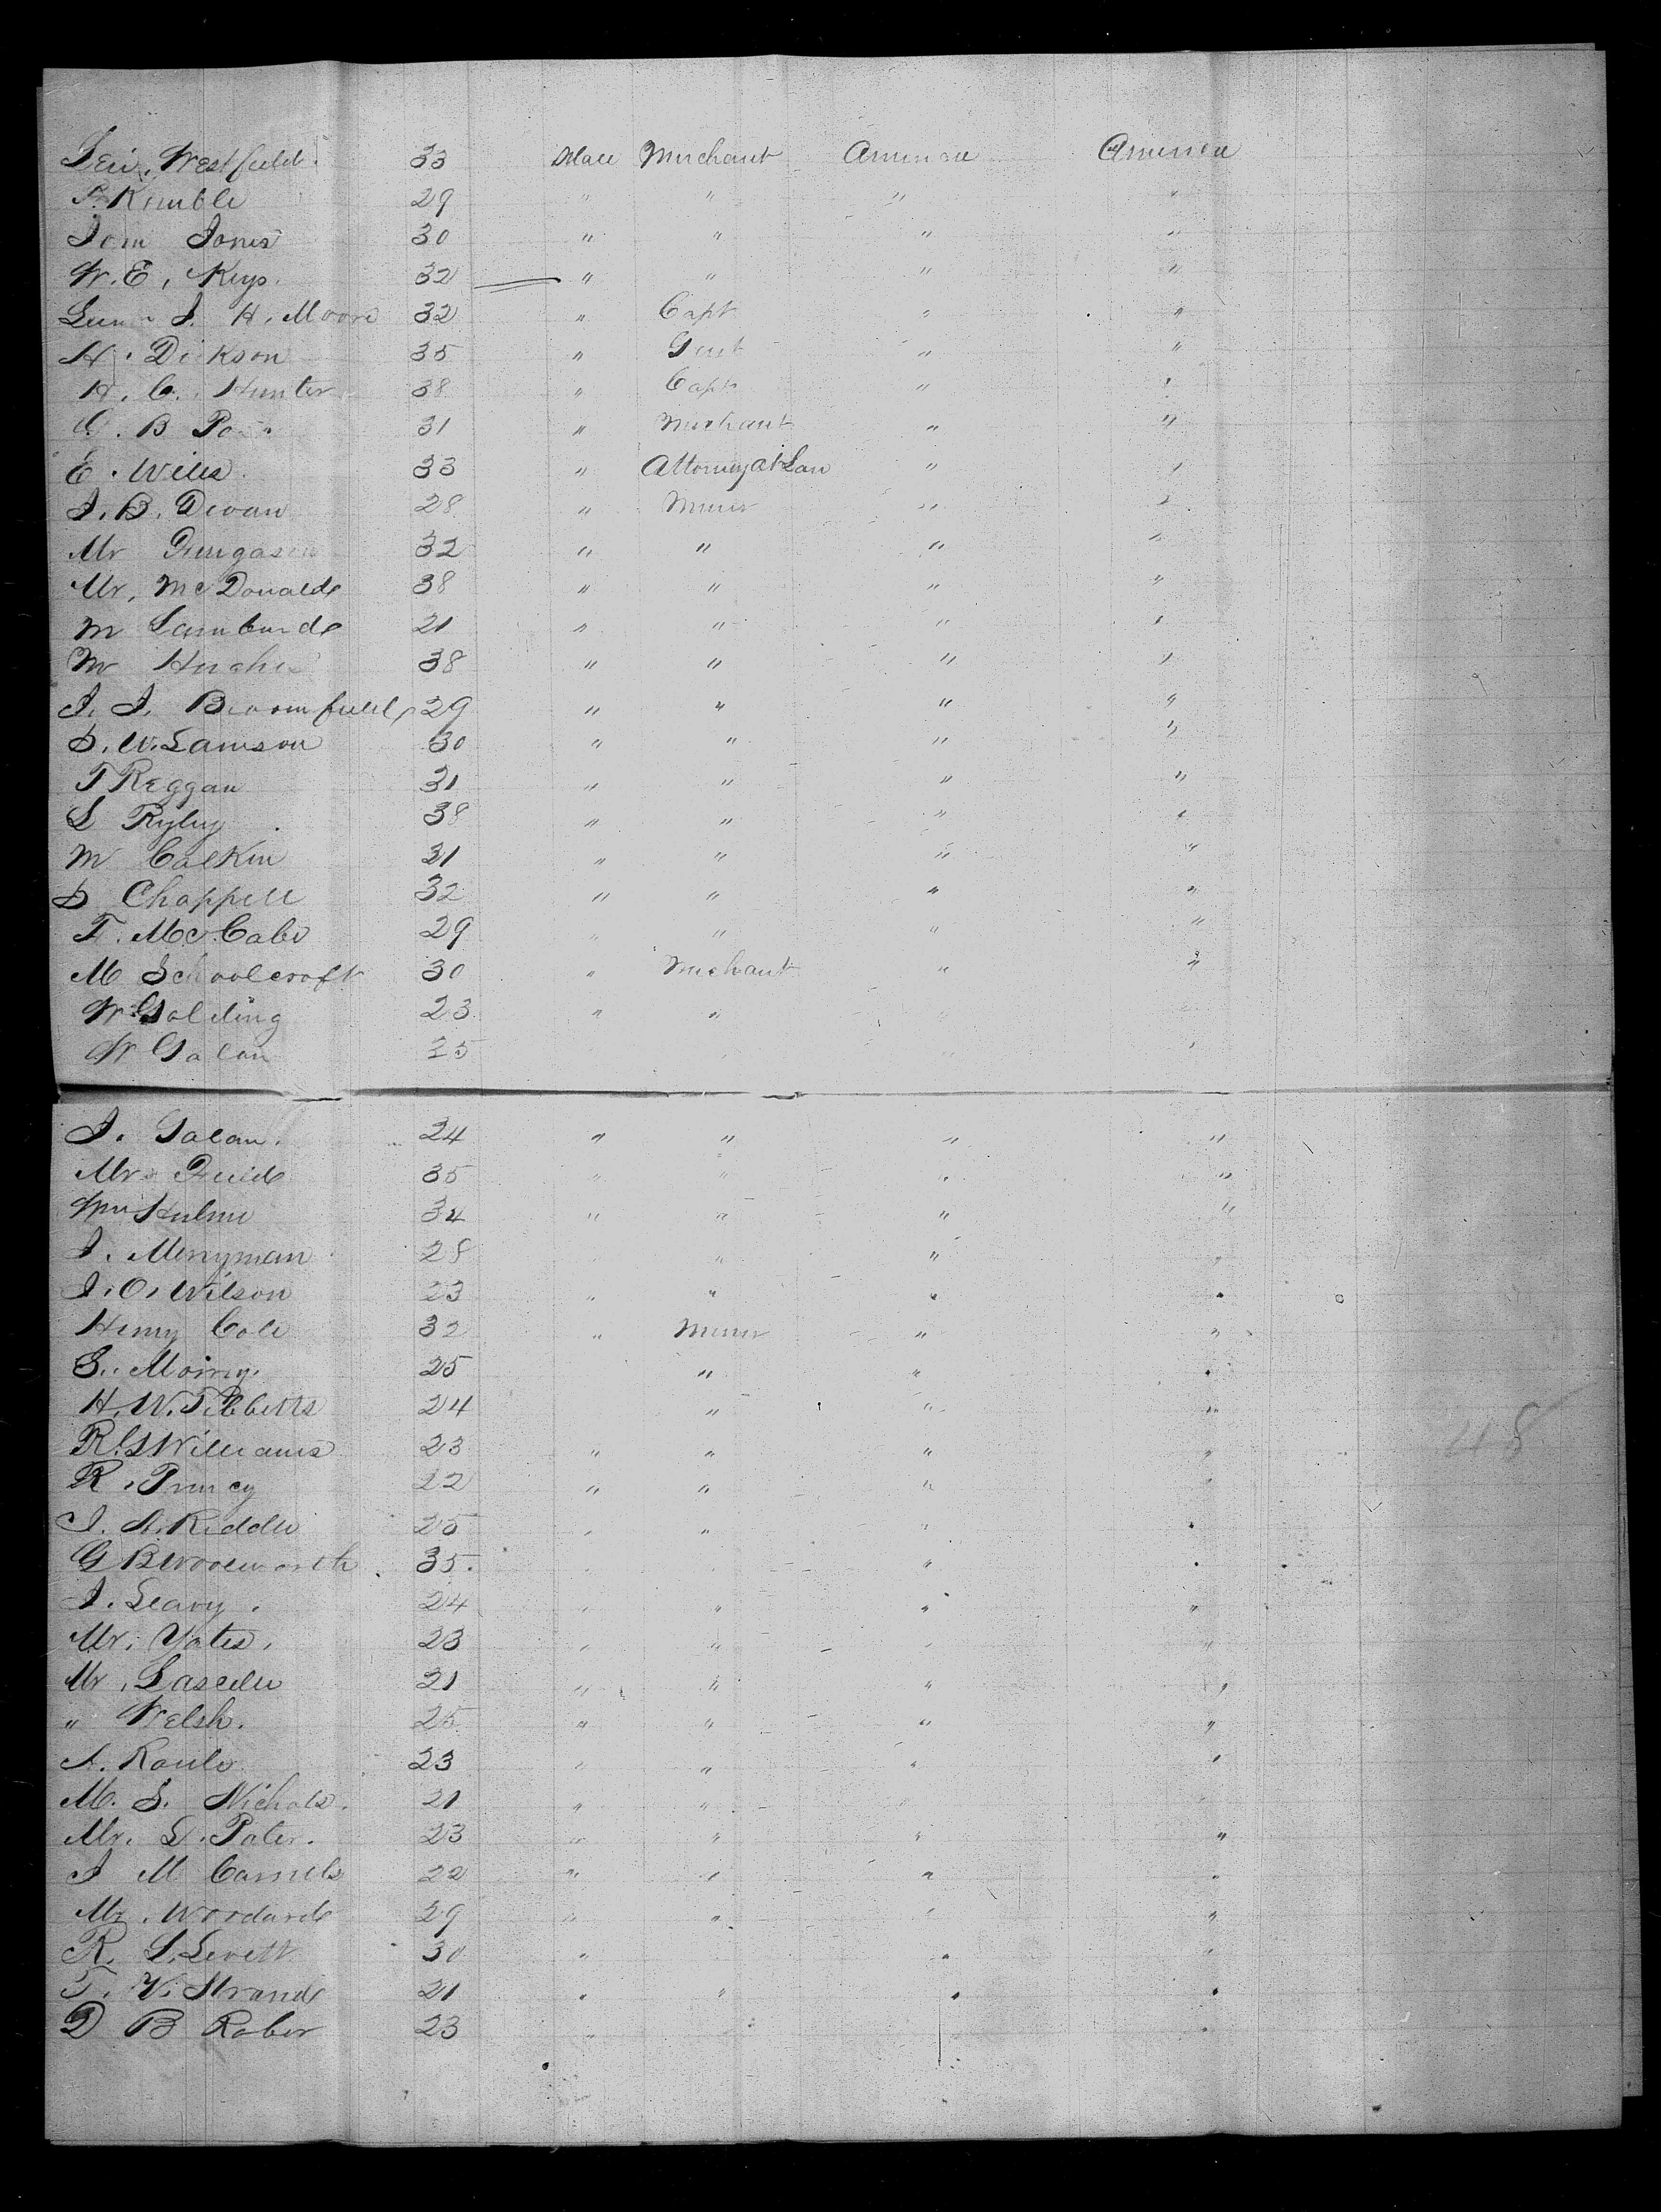 Levi Westfield. 33 Male Merchant America America
P. Kimble 29 " " " "
Tom Jones 30 " " " "
W. E. Keys. 32 " " " "
J. H. Moore 32 " Capt " "
H. Dickson 35 " Gent " "
H. C. Hunter 38 " Capt " "
B 31 " Merchant " "
E. Wills. 33 " Attorney at Law " "
J. B. Devan 28 " Miner " "
Mr 32 " " " "
Mr. McDonald 38 " " " "
M 21 " " " "
M Hughes 38 " " " "
J. J. Broomfield 29 " " " "
D. W. Lamson 30 " " " "
T Reggan 31 " " " "
L Ryley 38 " " " "
M Calkin 31 " " " "
D Chappell 32 " " " "
T. McCabe 29 " " " "
M Schoolcroft 30 " Merchant " "
W Golding 23 " " " "
W Galan 25 " " "
J. Galan. 24 " " " "
Mr Field 35 " " " "
Wm Hulme 34 " " " "
J. Merryman 28 " " " "
J. O. Wilson 23 " " " "
Henry Cole 32 " Miner " "
S. 25 " " "
H. W. Tibbetts 24 " " "
R. S Williams 23 " " " "
R. 22 " " " "
J. A. Riddle 25 " " " "
G B Woodworth 35. " " " "
J. Leary. 24 " " " "
Mr. Yates. 23 " " " "
Mr. Lascelle 21 " " " "
" Welsh. 25 " " " "
A. 23 " " " "
M. S. Nichols. 21 " " " "
Mr. L. Pater. 23 " " " "
J M 22 " " " "
Mr. Woodard 29 " " " "
R. S. Levett 30 " " "
T. V. Strand 21 " " " "
D B Rober 23 " " "
48